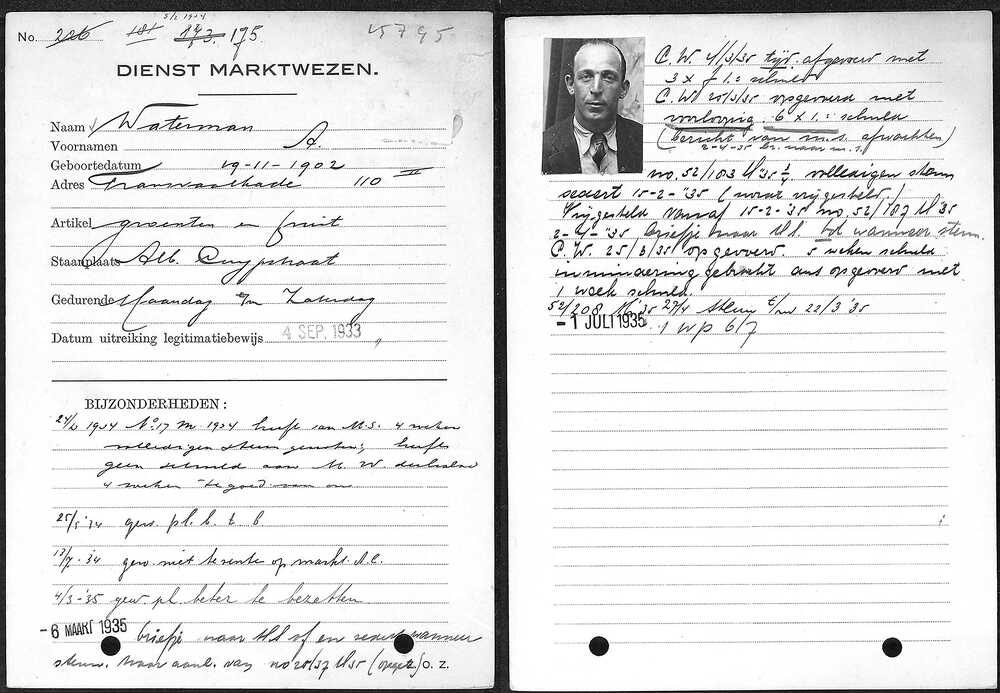 5/2 1934
No. 206 181 173. 175. 45795
DIENST MARKTWEZEN.
Naam Waterman
Voornamen A.
Geboortedatum 19-11-1902
Adres Transvaalkade 110 II
Artikel groenten en fruit
Staanplaats Alb. Cuypstraat
Gedurende Maandag t/m Zaterdag
Datum uitreiking legitimatiebewijs 4 SEP. 1933
BIJZONDERHEDEN:
24/2 1934 No. 17 M 1934 heeft van M.S. 4 weken
volledigen steun genoten; heeft
geen schuld aan M.W. derhalve
4 weken te goed van ons
25/5 '34 gew. pl. b. t. b
13/7 - 34 gew. niet te venten op markt A.C.
4/3 - '35 gew. pl. beter te bezetten.
-6 MAART 1935 briefje naar M.S. of en sedert wanneer
steun. Naar aanl. van no 20/37 M'35 O. Z.
C.W. 4/3/35 tijd. afgevoerd met
3 x f 1.= schuld
C.W. 25/3/35 opgevoerd met
voorloopig 6 x 1.= schuld
(bericht van m.s. afwachten)
2-4-35 br. naar m.s.
no. 52/103 M'35 volledigen steun
sedert 15-2-'35 (wordt vrijgesteld)
Vrijgesteld vanaf 15-2-'35 no. 52/107 M'35
2-4-'35 briefje naar M.S. tot wanneer steun.
C.W. 25/3/35 opgevoerd. 5 weken schuld
in mindering gebracht dus opgevoerd met
1 week schuld.
52/208 M'35 27/4 steun t/m 22/3 '35
-1 JULI 1935 1 wp 6/7